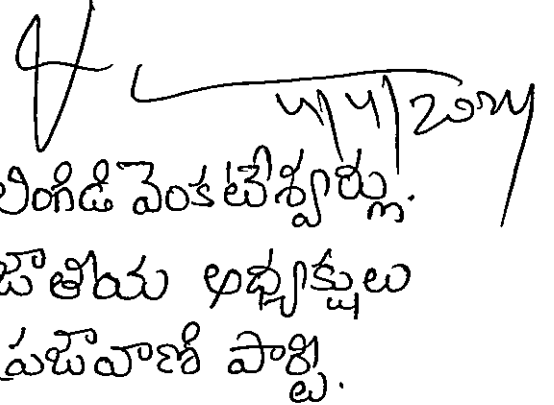 4/4/2024
లింగిడి వెంకటేశ్వర్లు.
జాతీయ అధ్యక్షులు
ప్రజావాణి పార్టీ.